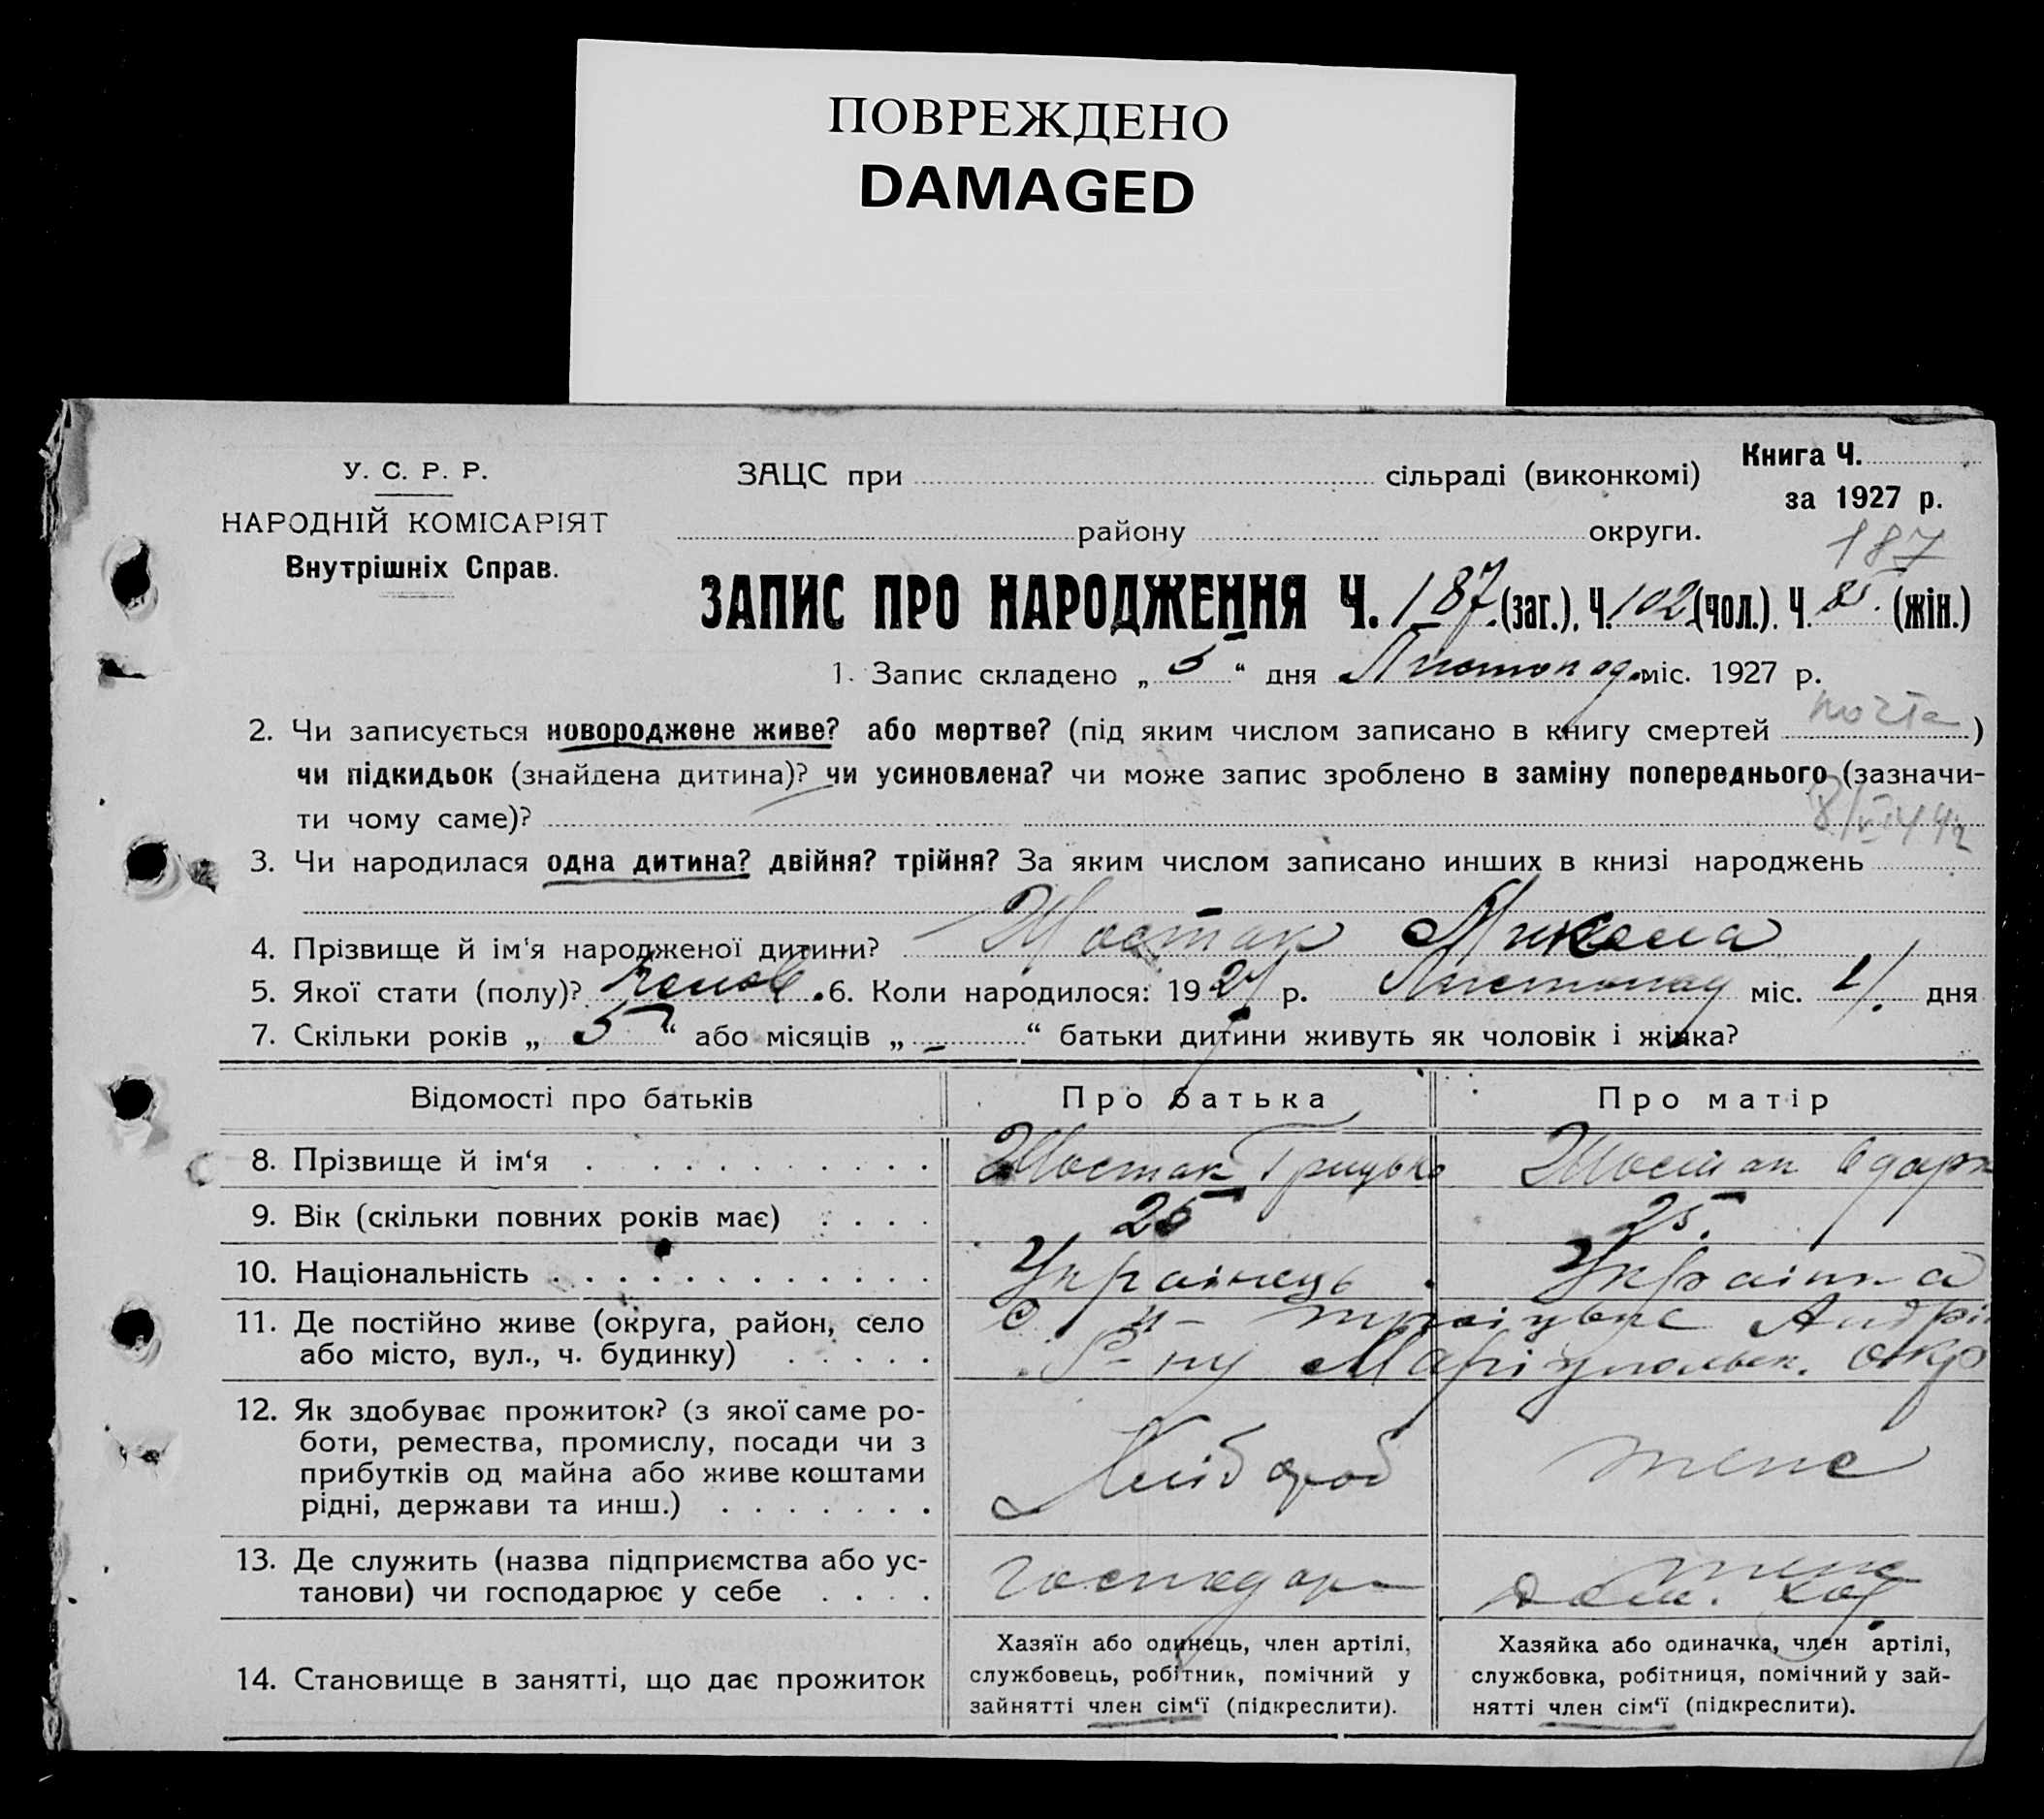 ПОВРЕЖДЕНО
DAMAGED
У. С. Р. Р.
НАРОДНІЙ КОМІСАРІЯТ
Внутрішніх Справ.
ЗАЦС при сільраді (виконкомі)
району округи.
Книга Ч.
за 1927 р.
187
ЗАПИС ПРО НАРОДЖЕННЯ Ч. 187 (заг.), Ч. 102 (чол.), Ч. 85. (жін.)
1. Запис складено „ 5 “ дня Листопад міс. 1927 р.
2. Чи записується новороджене живе? або мертве? (під яким числом записано в книгу смертей )
чи підкидьок (знайдена дитина)? чи усиновлена? чи може запис зроблено в заміну попереднього (зазначи-
ти чому саме)?
3. Чи народилася одна дитина? двійня? трійня? За яким числом записано инших в книзі народжень
4. Прізвище й ім‘я народженої дитини? Шостак Микола
5. Якої стати (полу)? 6. Коли народилося: 1927 р. Листопад міс. 1. дня
7. Скільки років „ 5 “ або місяців „ - “ батьки дитини живуть як чоловік і жінка?
Відомості про батьків Про батька Про матір
8. Прізвище й ім‘я Шостак Грицько Шостак Одарк
9. Вік (скільки повних років має) 25 25.
10. Національність Українець Українка
11. Де постійно живе (округа, район, село
або місто, вул., ч. будинку) Р-ну Маріупольськ. окр
12. Як здобуває прожиток? (з якої саме ро-
боти, ремества, промислу, посади чи з
прибутків од майна або живе коштами
рідні, держави та инш.) Хлібороб
13. Де служить (назва підприємства або ус-
танови) чи господарює у себе Господар Дом. хоз
14. Становище в занятті, що дає прожиток
Хазяїн або одинець, член артілі,
службовець, робітник, помічний у
зайнятті член сім‘ї (підкреслити).
Хазяйка або одиначка, член артілі,
службовка, робітниця, помічний у зай-
нятті член сім‘ї (підкреслити).